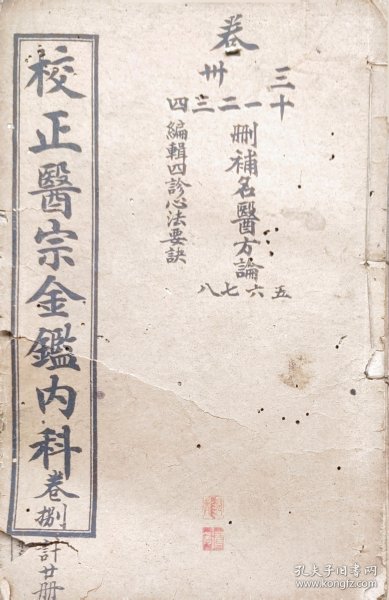 卷
三十
卅
一二三四
刪補名醫方論
五六七八
編輯四診心法要訣
校正醫宗金鑑內科
卷捌
計廿册
孔夫子旧书网